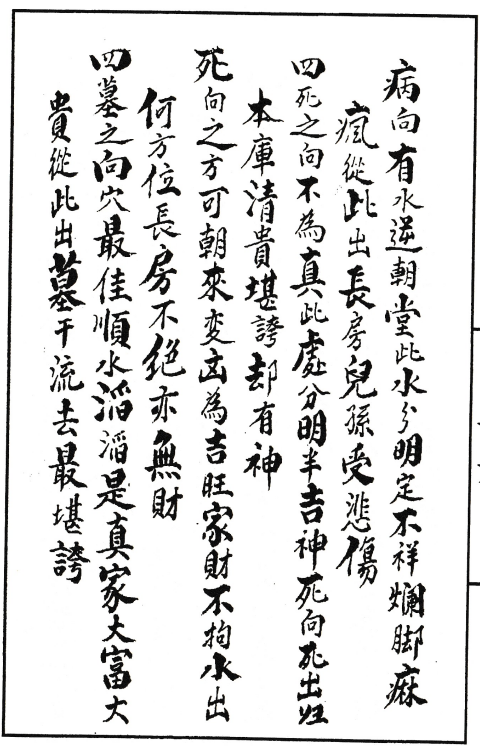 病向有水逆朝堂此水分明定不祥爛脚痳
瘋從此出長房兒孫受悲傷
四死之向不為真此處分明半吉神死向死出归
本庫清貴堪誇却有神
死向之方可朝來変凶為吉旺家財不拘水出
何方位長房不絕亦無財
四墓之向穴最佳順水滔滔是真家大富大
貴從此出墓干流去最堪誇